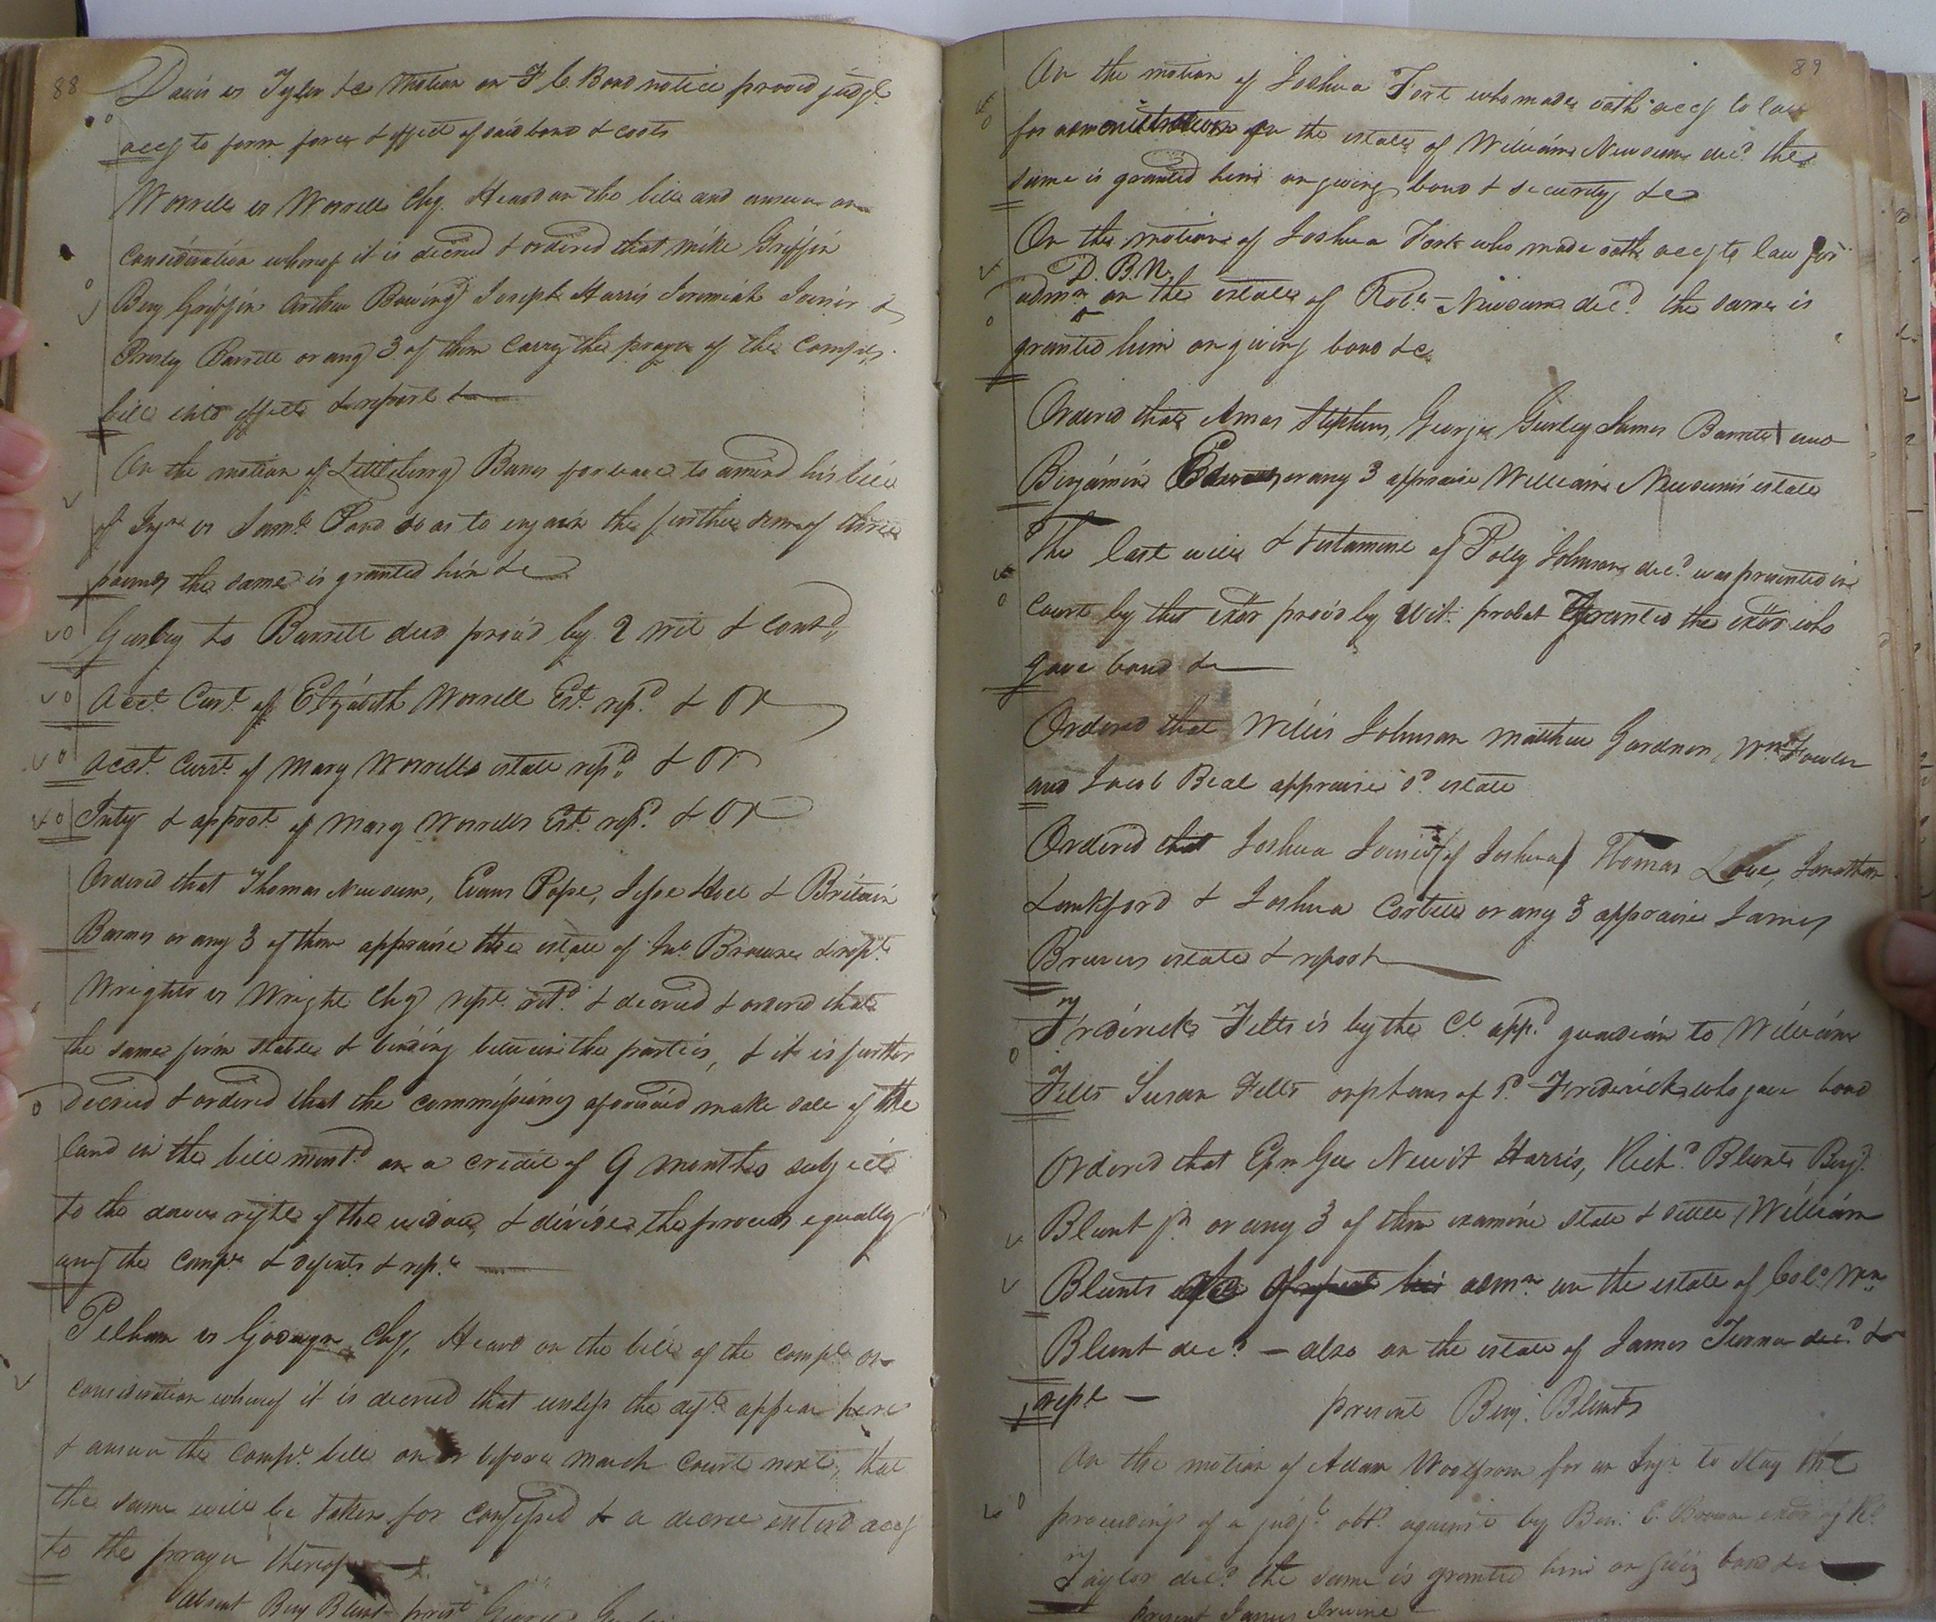 88
Davis vs Tyler &c motion on F. C. Bond notice proved judgt.
accg to form force & effect of said bond & costs
Worrells vs Worrells Chy. Heard on the bill and answer on
consideration whereof it is decreed & ordered that mike Griffin
Benj Griffin Arthur Bowing Joseph Harris Jeremiah Joiner &
Presley Barrett or any 3 of them carry the prayer of the Complts.
bill into effect & report &c
On the motion of Littleberry Banes for leave to amend his bill
of Injn vs Saml. Pond so as to enjoin the further sum of three
pounds the same is granted him &c
Gurley to Barrett deed prov'd by 2 wit & contd.
acct. Curt. of Elizabeth Worrell Est. retd. & OR
acct. Currt. of Mary Worrells estate retd. & OR
Invty & apprst. of Mary Worrells Est. retd. & OR
Ordered that Thomas Newsum, Evans Pope, Jesse Hill & Britain
Barnes or any 3 of them appraise the estate of Jno. Browne & rept.
Wrights vs Wright Chy rept. retd. & decreed & ordered that
the same firm stable & binding between the parties, & it is further
decreed & ordered that the commissioners aforesaid make sale of the
land in the bill mentd. on a credit of 9 months subject
to the dower right of the widow, & divide the proceeds equally
amg the Compts. & defents. & rept.
Pelham vs Goodwyn Chy. Heard on the bill of the complt. on
consideration whereof it is decreed that unless the deft. appear here
& answer the compt. bill on or before march court next, that
the same will be taken for confessed & a decree entered accg
to the prayer thereof
Absent Benj Blunt prest. George Gurley
89
On the motion of Joshua Fort who made oath accg to law
for administration on the estate of William Newsum decd. the
same is granted him on giving bond & security &c
On the motion of Joshua Fort who made oath accg to law for
D. B. N.
admn on the estate of Robt. Newsum decd. the same is
granted him on giving bond &c
Ordered that Amos Stephens, George Gurley James Barrett and
Benjamin Edwards or any 3 appraise William Newsum's estate
The last will & testament of Polly Johnson decd. was presented in
Court by the exor prov'd by Wit. probat granted the exor who
gave bond &c
Ordered that Willis Johnson Matthew Gardner, Wm. Fowler
and Jacob Beal appraise sd. estate
Ordered that Joshua Joiner (of Joshua) Thomas Love, Jonathan
Lankford & Joshua Corbell or any 3 appraise James
Brewers estate & report
Fredrick Felts is by the Ct. appd. guardian to William
Felts Susan Felts orphans of sd. Frederick who gave bond
Ordered that Epm Gee Newit Harris, Richd. Blunt Benj.
Blunt jr. or any 3 of them examine state & settle William
Blunts admn. on the estate of Colo. Wm.
Blunt decd. — also on the estate of James Turner decd. &
rept — present Benj. Blunt
On the motion of Adam Woolfrom for an Injn to stay the
proceedings of a judgt. obtd. against by Ben. C. Browne exor of R.
Taylor decd. the same is granted him on givg bond &c
present James Irvine